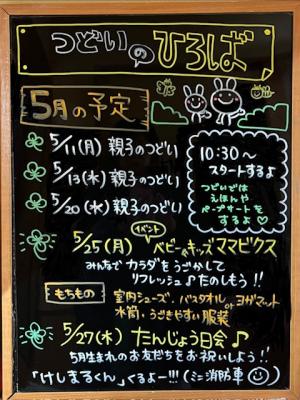 つどいのひろば
5月の予定
5/11(月) 親子のつどい
5/13(水) 親子のつどい
5/20(水) 親子のつどい
10:30〜
スタートするよ
つどいでは
えほんや
ペープサートを
するよ♡
イベント
5/25(月) ベビー&キッズママビクス
みんなで カラダをうごかして
リフレッシュ♪たのしもう!!
もちもの
室内シューズ、バスタオルorヨガマット
水筒、うごきやすい服装
5/27(水) たんじょう日会♪
5月生まれのお友だちをお祝いしよう!!
「けしまるくん」くるよー!!!(ミニ消防車)